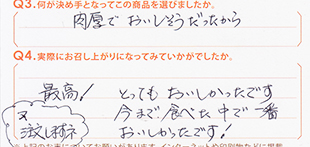 Q3.何が決め手となってこの商品を選びましたか。
肉厚で おいしそうだったから
Q4.実際にお召し上がりになってみていかがでしたか。
最高! とっても おいしかったです
又 注文しますネ
今まで 食べた 中で 一番
おいしかったです!